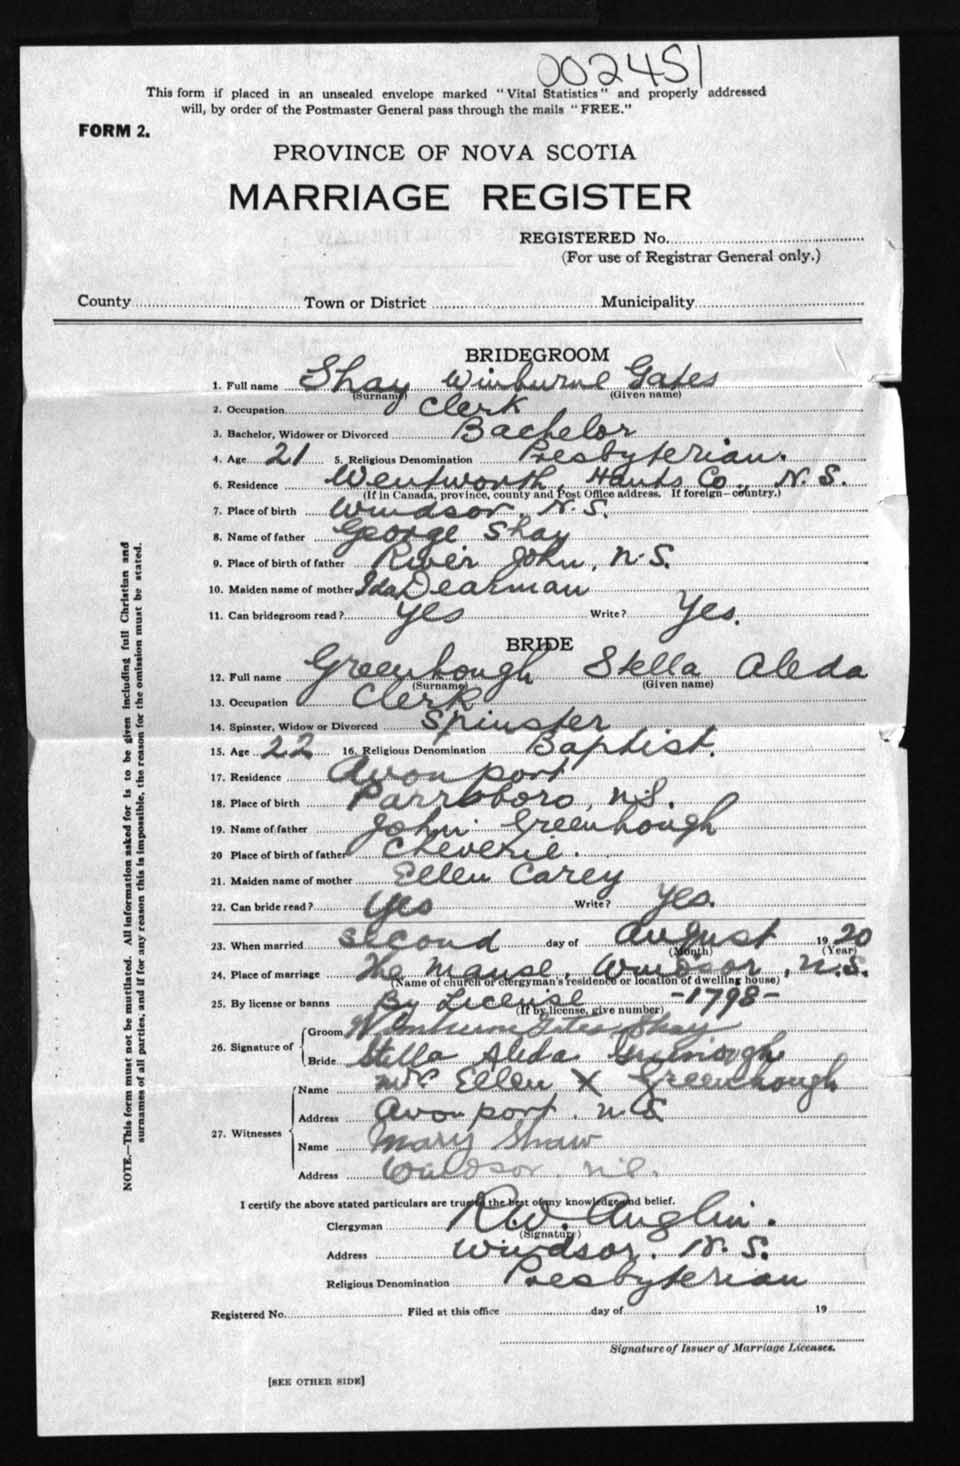 002451
This form if placed in an unsealed envelope marked "Vital Statistics" and properly addressed
will, by order of the Postmaster General pass through the mails "FREE."
FORM 2.
PROVINCE OF NOVA SCOTIA
MARRIAGE REGISTER
REGISTERED No.
(For use of Registrar General only.)
County Town or District Municipality
BRIDEGROOM
1. Full name Shay Winburne Gates
(Surname) (Given name)
2. Occupation Clerk
3. Bachelor, Widower or Divorced Bachelor
4. Age 21 5. Religious Denomination Presbyterian.
6. Residence Wentworth, Hants Co., N.S.
(If in Canada, province, county and Post Office address. If foreign—country.)
7. Place of birth Windsor, N.S.
8. Name of father George Shay
9. Place of birth of father River John, N.S.
10. Maiden name of mother Ida Dearman
11. Can bridegroom read? Yes Write? Yes.
BRIDE
12. Full name Greenhough Stella Aleda
(Surname) (Given name)
13. Occupation Clerk
14. Spinster, Widow or Divorced Spinster
15. Age 22 16. Religious Denomination Baptist.
17. Residence Avonport
18. Place of birth Parrsboro, N.S.
19. Name of father John Greenhough
20 Place of birth of father Cheverie.
21. Maiden name of mother Ellen Carey
22. Can bride read? Yes Write? Yes.
23. When married second day of August 1920
(Month) (Year)
24. Place of marriage The Manse, Windsor, N.S.
(Name of church or clergyman's residence or location of dwelling house)
25. By license or banns By License -1798-
(If by license, give number)
26. Signature of Groom Winburne Gates Shay
Bride Stella Aleda
27. Witnesses Name Mrs Ellen X Greenhough
Address Avonport, N.S.
Name Mary Shaw
Address Windsor, N.S.
I certify the above stated particulars are true to the best of my knowledge and belief.
Clergyman R.W. Anglin.
(Signature)
Address Windsor, N.S.
Religious Denomination Presbyterian
Registered No. Filed at this office day of 19
Signature of Issuer of Marriage Licenses.
[SEE OTHER SIDE]
NOTE.—This form must not be mutilated. All information asked for is to be given including full Christian and
surnames of all parties, and if for any reason this is impossible, the reason for the omission must be stated.